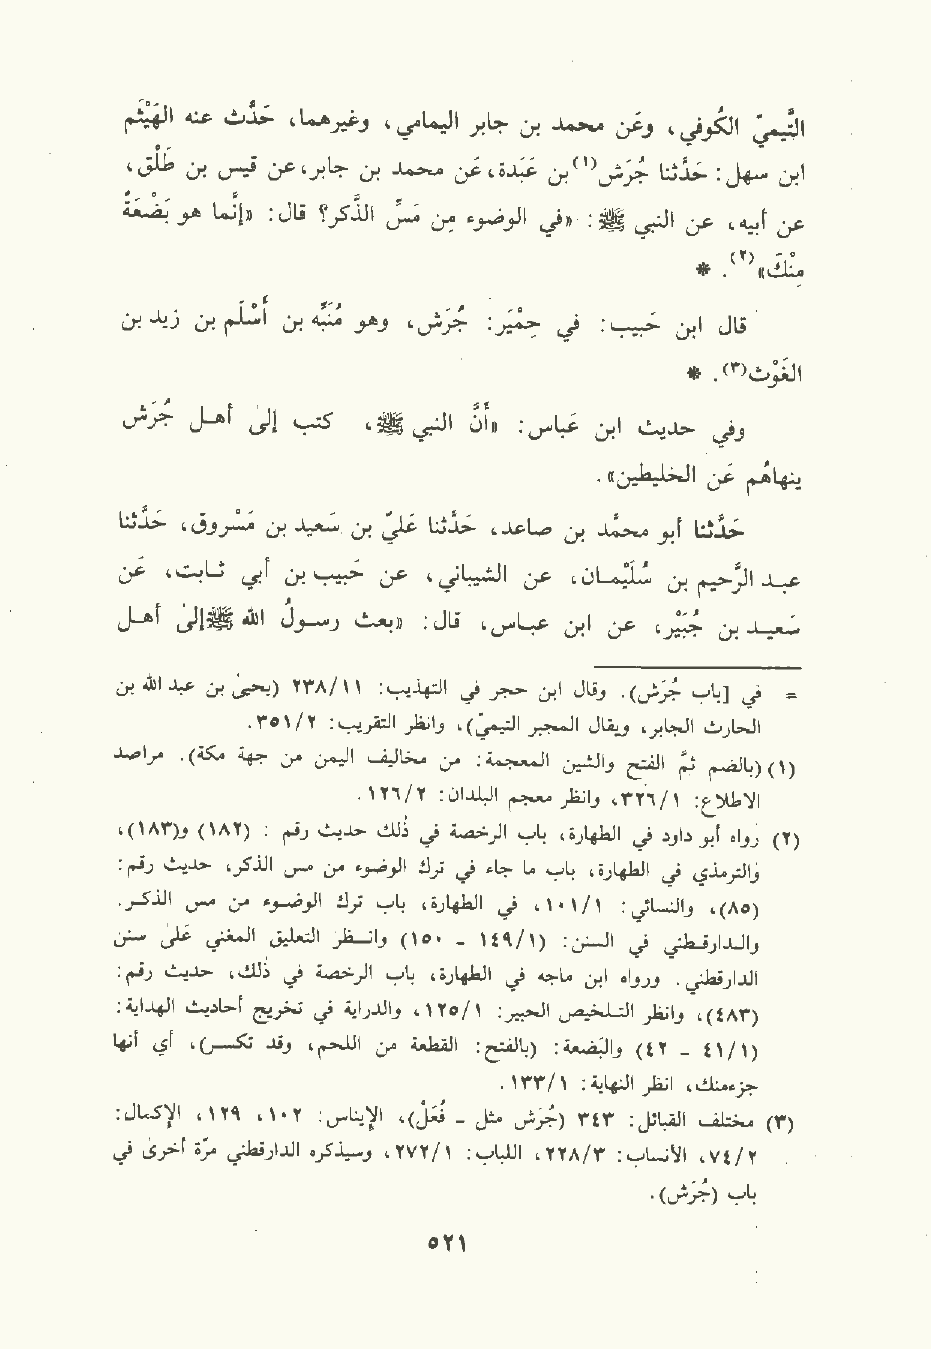 التَّيميّ الكُوفي، وعَن محمد بن جابر اليمامي، وغيرهما، حَدَّث عنه الهَيْثَم
ابن سهل: حَدَّثنا جُرَش(١) بن عَبَدة، عَن محمد بن جابر، عن قيس بن طَلْق،
عن أبيه، عن النبي ﷺ: «في الوضوء مِن مَسِّ الذَّكر؟ قال: «إنَّما هو بَضْعَةٌ
مِنْكَ»(٢). *
قال ابن حَبيب: في حِمْيَر: جُرَش، وهو مُنَبِّه بن أَسْلَم بن زيد بن
الغَوْث(٣). *
وفي حديث ابن عَباس: «أَنَّ النبي ﷺ، كتب إلى أهل جُرَش
ينهاهُم عَن الخليطين».
حَدَّثنا أبو محمَّد بن صاعد، حَدَّثنا عَليّ بن سَعيد بن مَسْروق، حَدَّثنا
عبد الرَّحيم بن سُلَيْمان، عن الشيباني، عن حَبيب بن أبي ثابت، عَن
سَعيد بن جُبَيْر، عن ابن عباس، قال: «بعث رسولُ الله ﷺ إلىٰ أهل
= في [باب جُرَش). وقال ابن حجر في التهذيب: ٢٣٨/١١ (يحيىٰ بن عبد الله بن
الحارث الجابر، ويقال المجبر التيميّ)، وانظر التقريب: ٣٥١/٢.
(١) (بالضم ثمَّ الفتح والشين المعجمة: من مخاليف اليمن من جهة مكة). مراصد
الاطلاع: ٣٢٦/١، وانظر معجم البلدان: ١٢٦/٢.
(٢) رواه أبو داود في الطهارة، باب الرخصة في ذٰلك حديث رقم : (١٨٢) و(١٨٣)،
والترمذي في الطهارة، باب ما جاء في ترك الوضوء من مس الذكر، حديث رقم:
(٨٥)، والنسائي: ١٠١/١، في الطهارة، باب ترك الوضوء من مس الذكر.
والدارقطني في السنن: (١٤٩/١ - ١٥٠) وانظر التعليق المغني علىٰ سنن
الدارقطني. ورواه ابن ماجه في الطهارة، باب الرخصة في ذٰلك، حديث رقم:
(٤٨٣)، وانظر التلخيص الحبير: ١٢٥/١، والدراية في تخريج أحاديث الهداية:
(٤١/١ - ٤٢) والبَضعة: (بالفتح: القطعة من اللحم، وقد تكسر)، أي أنها
جزء منك، انظر النهاية: ١٣٣/١.
(٣) مختلف القبائل: ٣٤٣ (جُرَش مثل - فُعَل)، الإِيناس: ١٠٢، ١٢٩، الإِكمال:
٧٤/٢، الأنساب: ٢٢٨/٣، اللباب: ٢٧٢/١، وسيذكره الدارقطني مرّة أُخرىٰ في
باب (جُرَش).
٥٢١